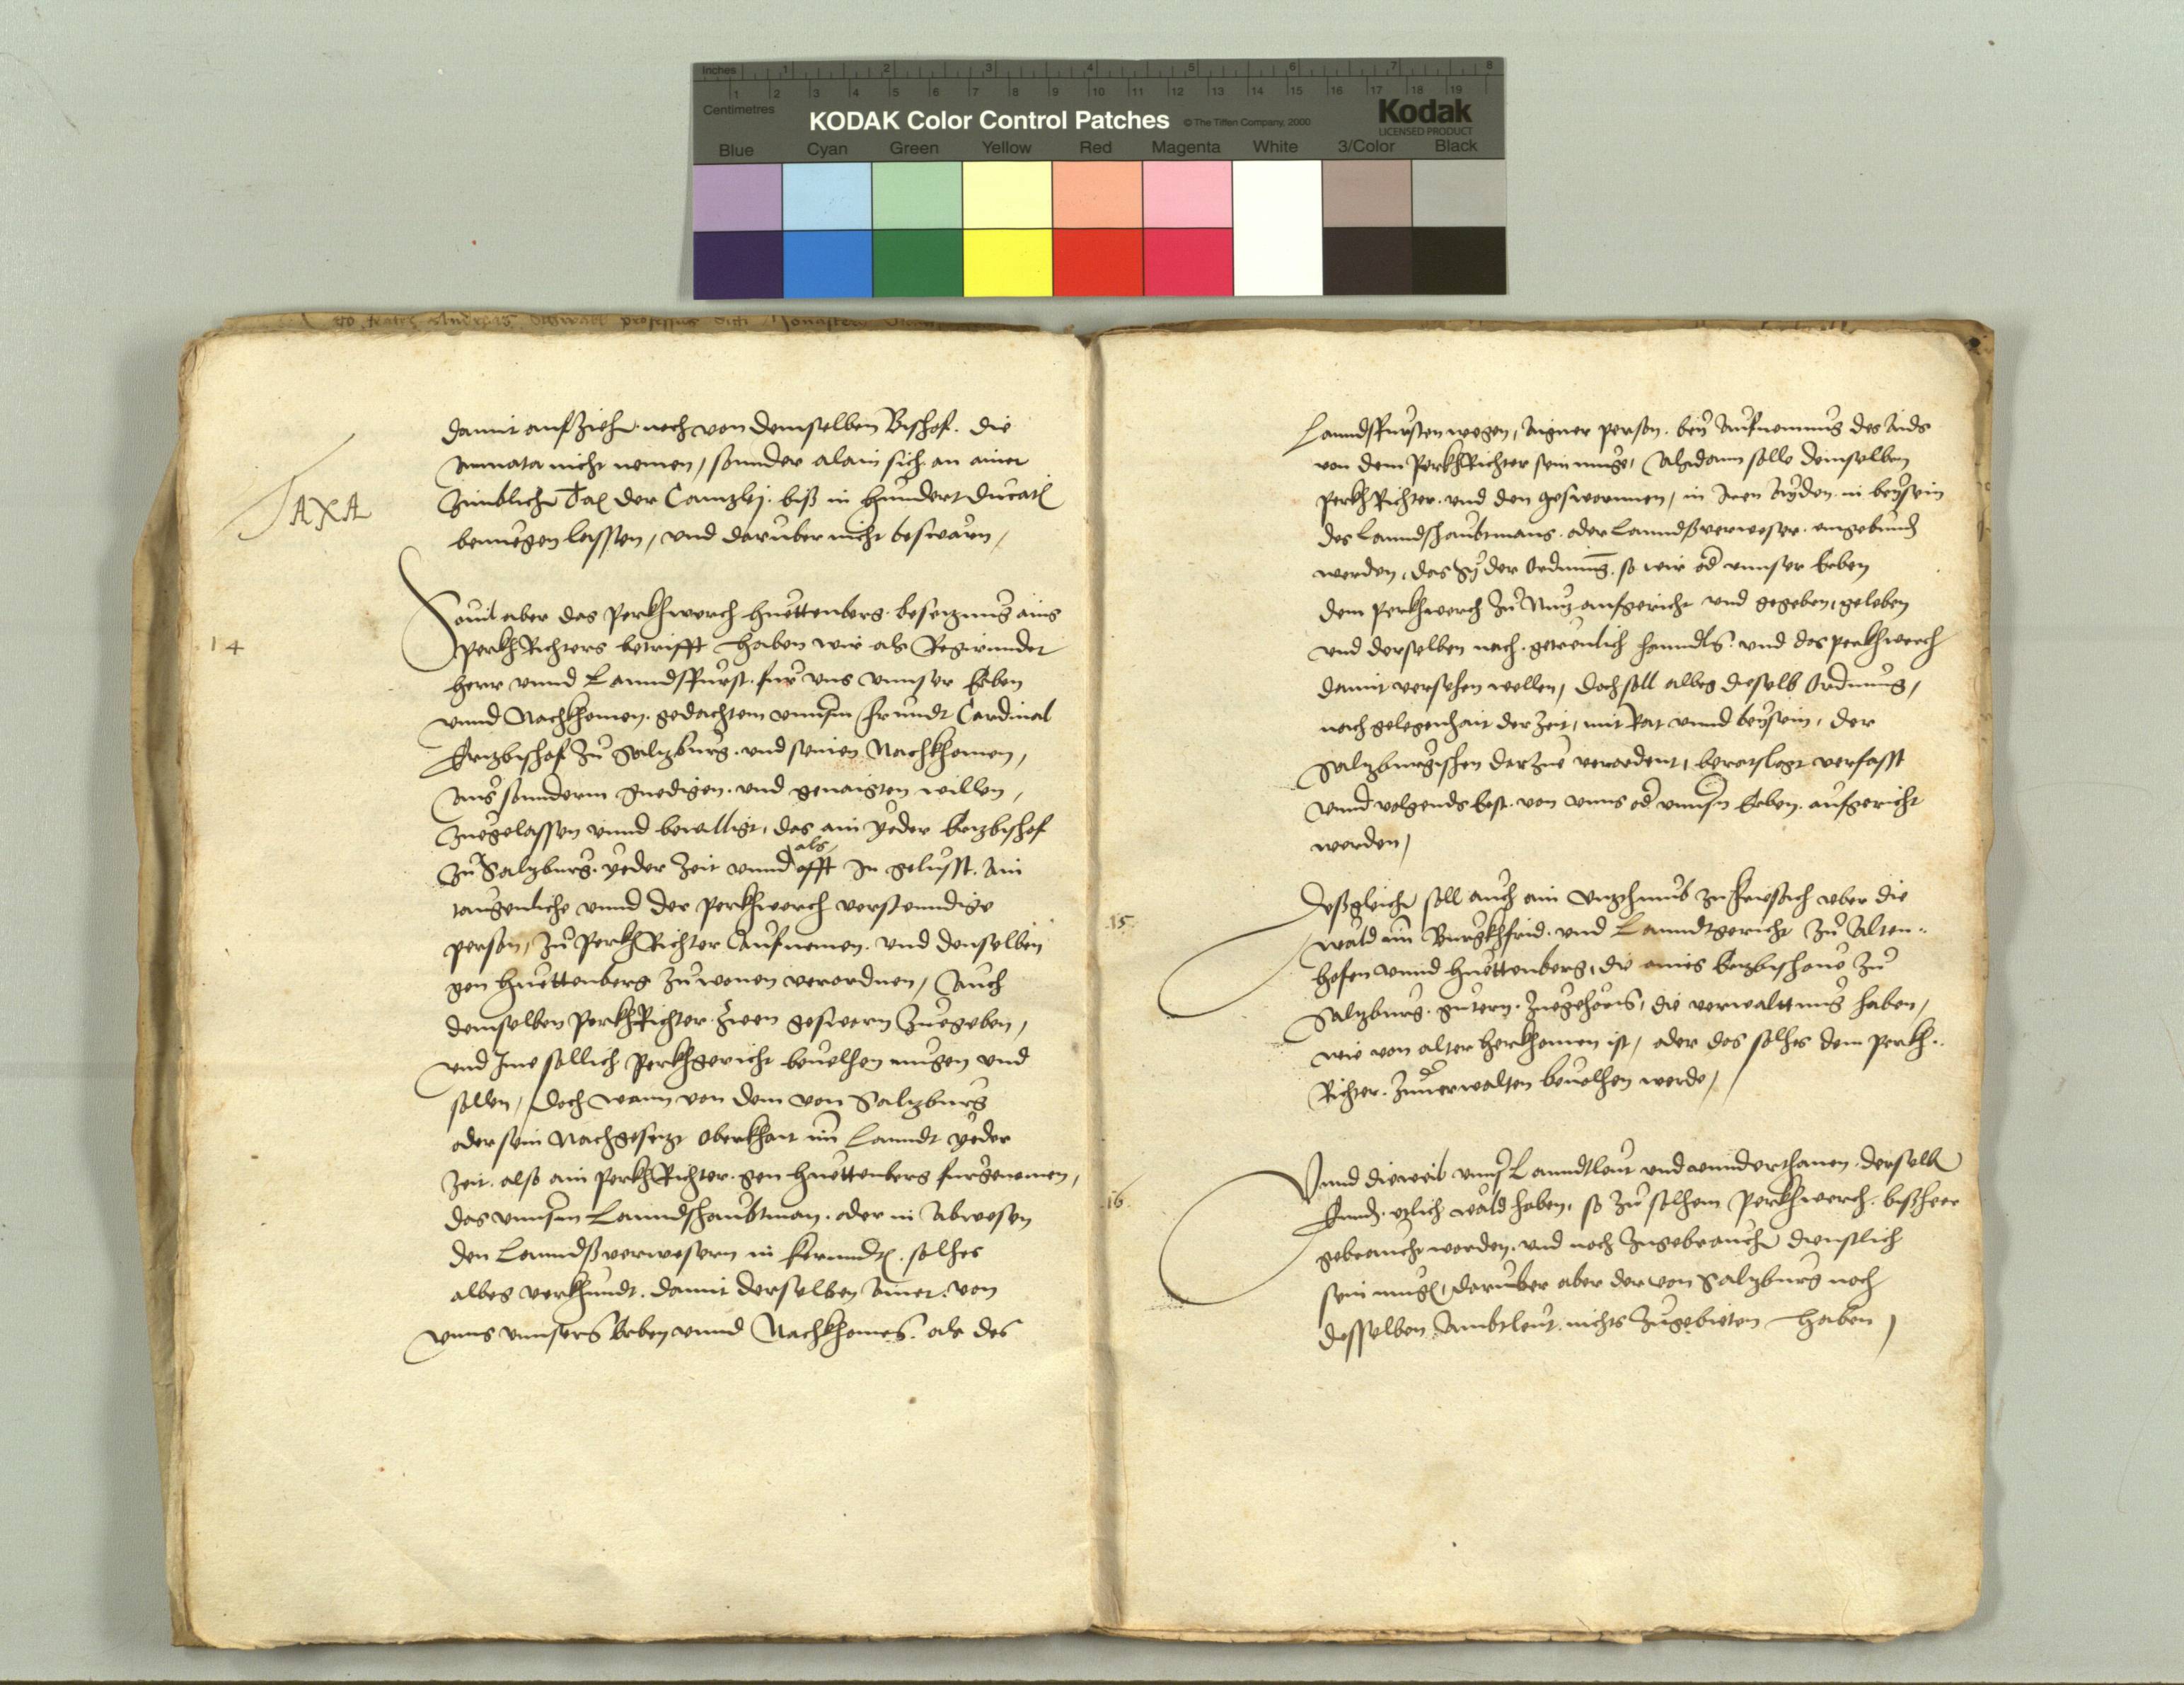 Inches 1 2 3 4 5 6 7 8
Centimetres 1 2 3 4 5 6 7 8 9 10 11 12 13 14 15 16 17 18 19
KODAK Color Control Patches © The Tiffen Company, 2000 Kodak
LICENSED PRODUCT
Blue Cyan Green Yellow Red Magenta White 3/Color Black
damit aufziehen noch von demselben Bischof. die
Annata nicht nemen, sonnder alain sich an ainer
TAXA
Zimblichen Tax der Canzlej. biß in hundert ducaten
benuegen lassen, und daruber nicht beswarn,
14
Souil aber das Perkhwerch Huettenberg. besetzung ains
PerkhRichters betrifft haben wir als Regierunder
herr unnd Lanndsfurst. fur uns unnser Erben
unnd Nachkhomen. gedachtem unnserm frundt Cardinal
Ertzbischof zu Saltzburg. und seinen Nachkhomen,
Aus sonnderm gnedigen. und genaigten willen,
Zuegelassen unnd bewilligt, das ain yeder Ertzbischof
zu Saltzburg. yeder Zeit unnd als offt In gelusst. Ain
taugenliche unnd der Perkhwerch verstenndige
person, zu PerkhRichter Aufnemen. und denselben
gen Huettenberg zu wonen verordnen, Auch
demselben PerkhRichter. zween gesworn Zuegeben,
und Ime sollich Perkhgericht beuelhen mugen und
sollen, Doch wann von dem von Saltzburg
oder sein Nachgesetzt Oberkhait im Lanndt yeder
Zeit. also ain PerkhRichter. gen Huettenberg furgenomen,
das unnserm Lanndshaubtman. oder in Abwesen
den Lanndßverwesern in Kernndten. solhes
albeg verkhundt. damit derselben Ainer. von
unns unnsers Erben unnd Nachkhomen. als des
Lanndsfursten wegen, Aigner person. bey Aufnemung des Aids
von dem PerkhRichter sein muge, Alsdann solle demselben
PerkhRichter. und den geswornnen, in Iren Ayden. in beysein
des Lanndshaubtmans. oder Lanndßverweser. eingebunden
werden, das Sy der Ordnung. so wir oder unnser Erben
dem Perkhwerch zu Nutz aufgericht und gegeben, geleben
und derselben nach. getreulich hanndln. und das perkhwerch
damit versehen wellen, doch soll albeg dieselb Ordnung,
nach gelegenhait der Zeit, mit Rat unnd beysein, der
Saltzburgischen darzue verordent, beratslagt verfasst
unnd volgends best. von unns oder unnsern Erben. aufgericht
werden,
15
Deßgleichen soll auch ain Vitzthumb zu Friesach uber die
wäld im Burgkhfrid. und Lanndtgericht zu Alten-
hofen unnd Huettenberg, die aines Ertzbischoue zu
Saltzburg. guetern. Zuegehörig, die verwalttung haben,
wie von alter herkhomen ist, oder das solhs dem Perkh-
Richter. Zuuerwalten beuolhen werde,
16
Unnd dieweil unnser Lanndtleut und unnderthanen. derselben
Ennd. etlich wäld haben, so zu solhem Perkhwerch. bißheer
gebraucht worden. und noch Zugebrauchen dienstlich
sein mugen, daruber aber der von Saltzburg noch
desselben Ambtleut. nichts Zugebieten haben,